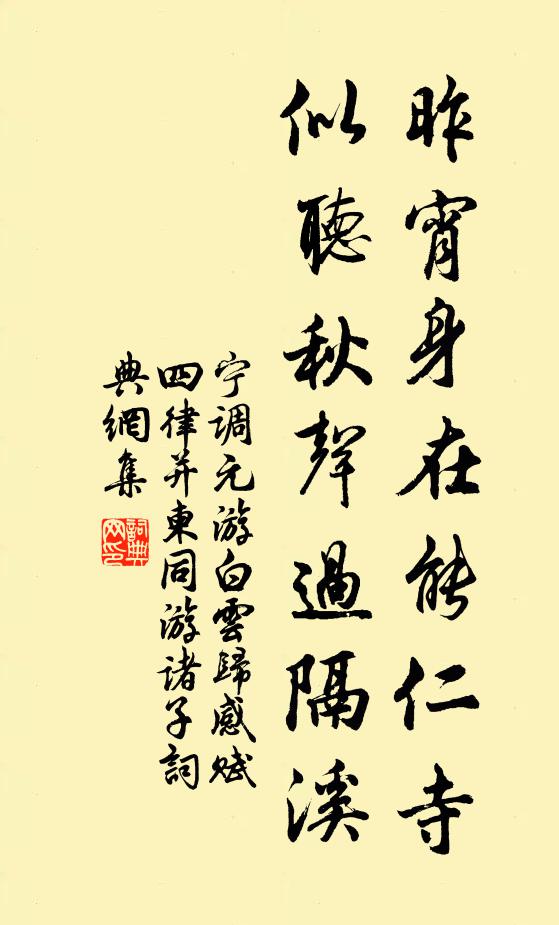 昨宵身在能仁寺
似聽秋聲過隔溪
宁调元游白雲歸感赋
四律并東同游诸子詞
典網集
詞典網印